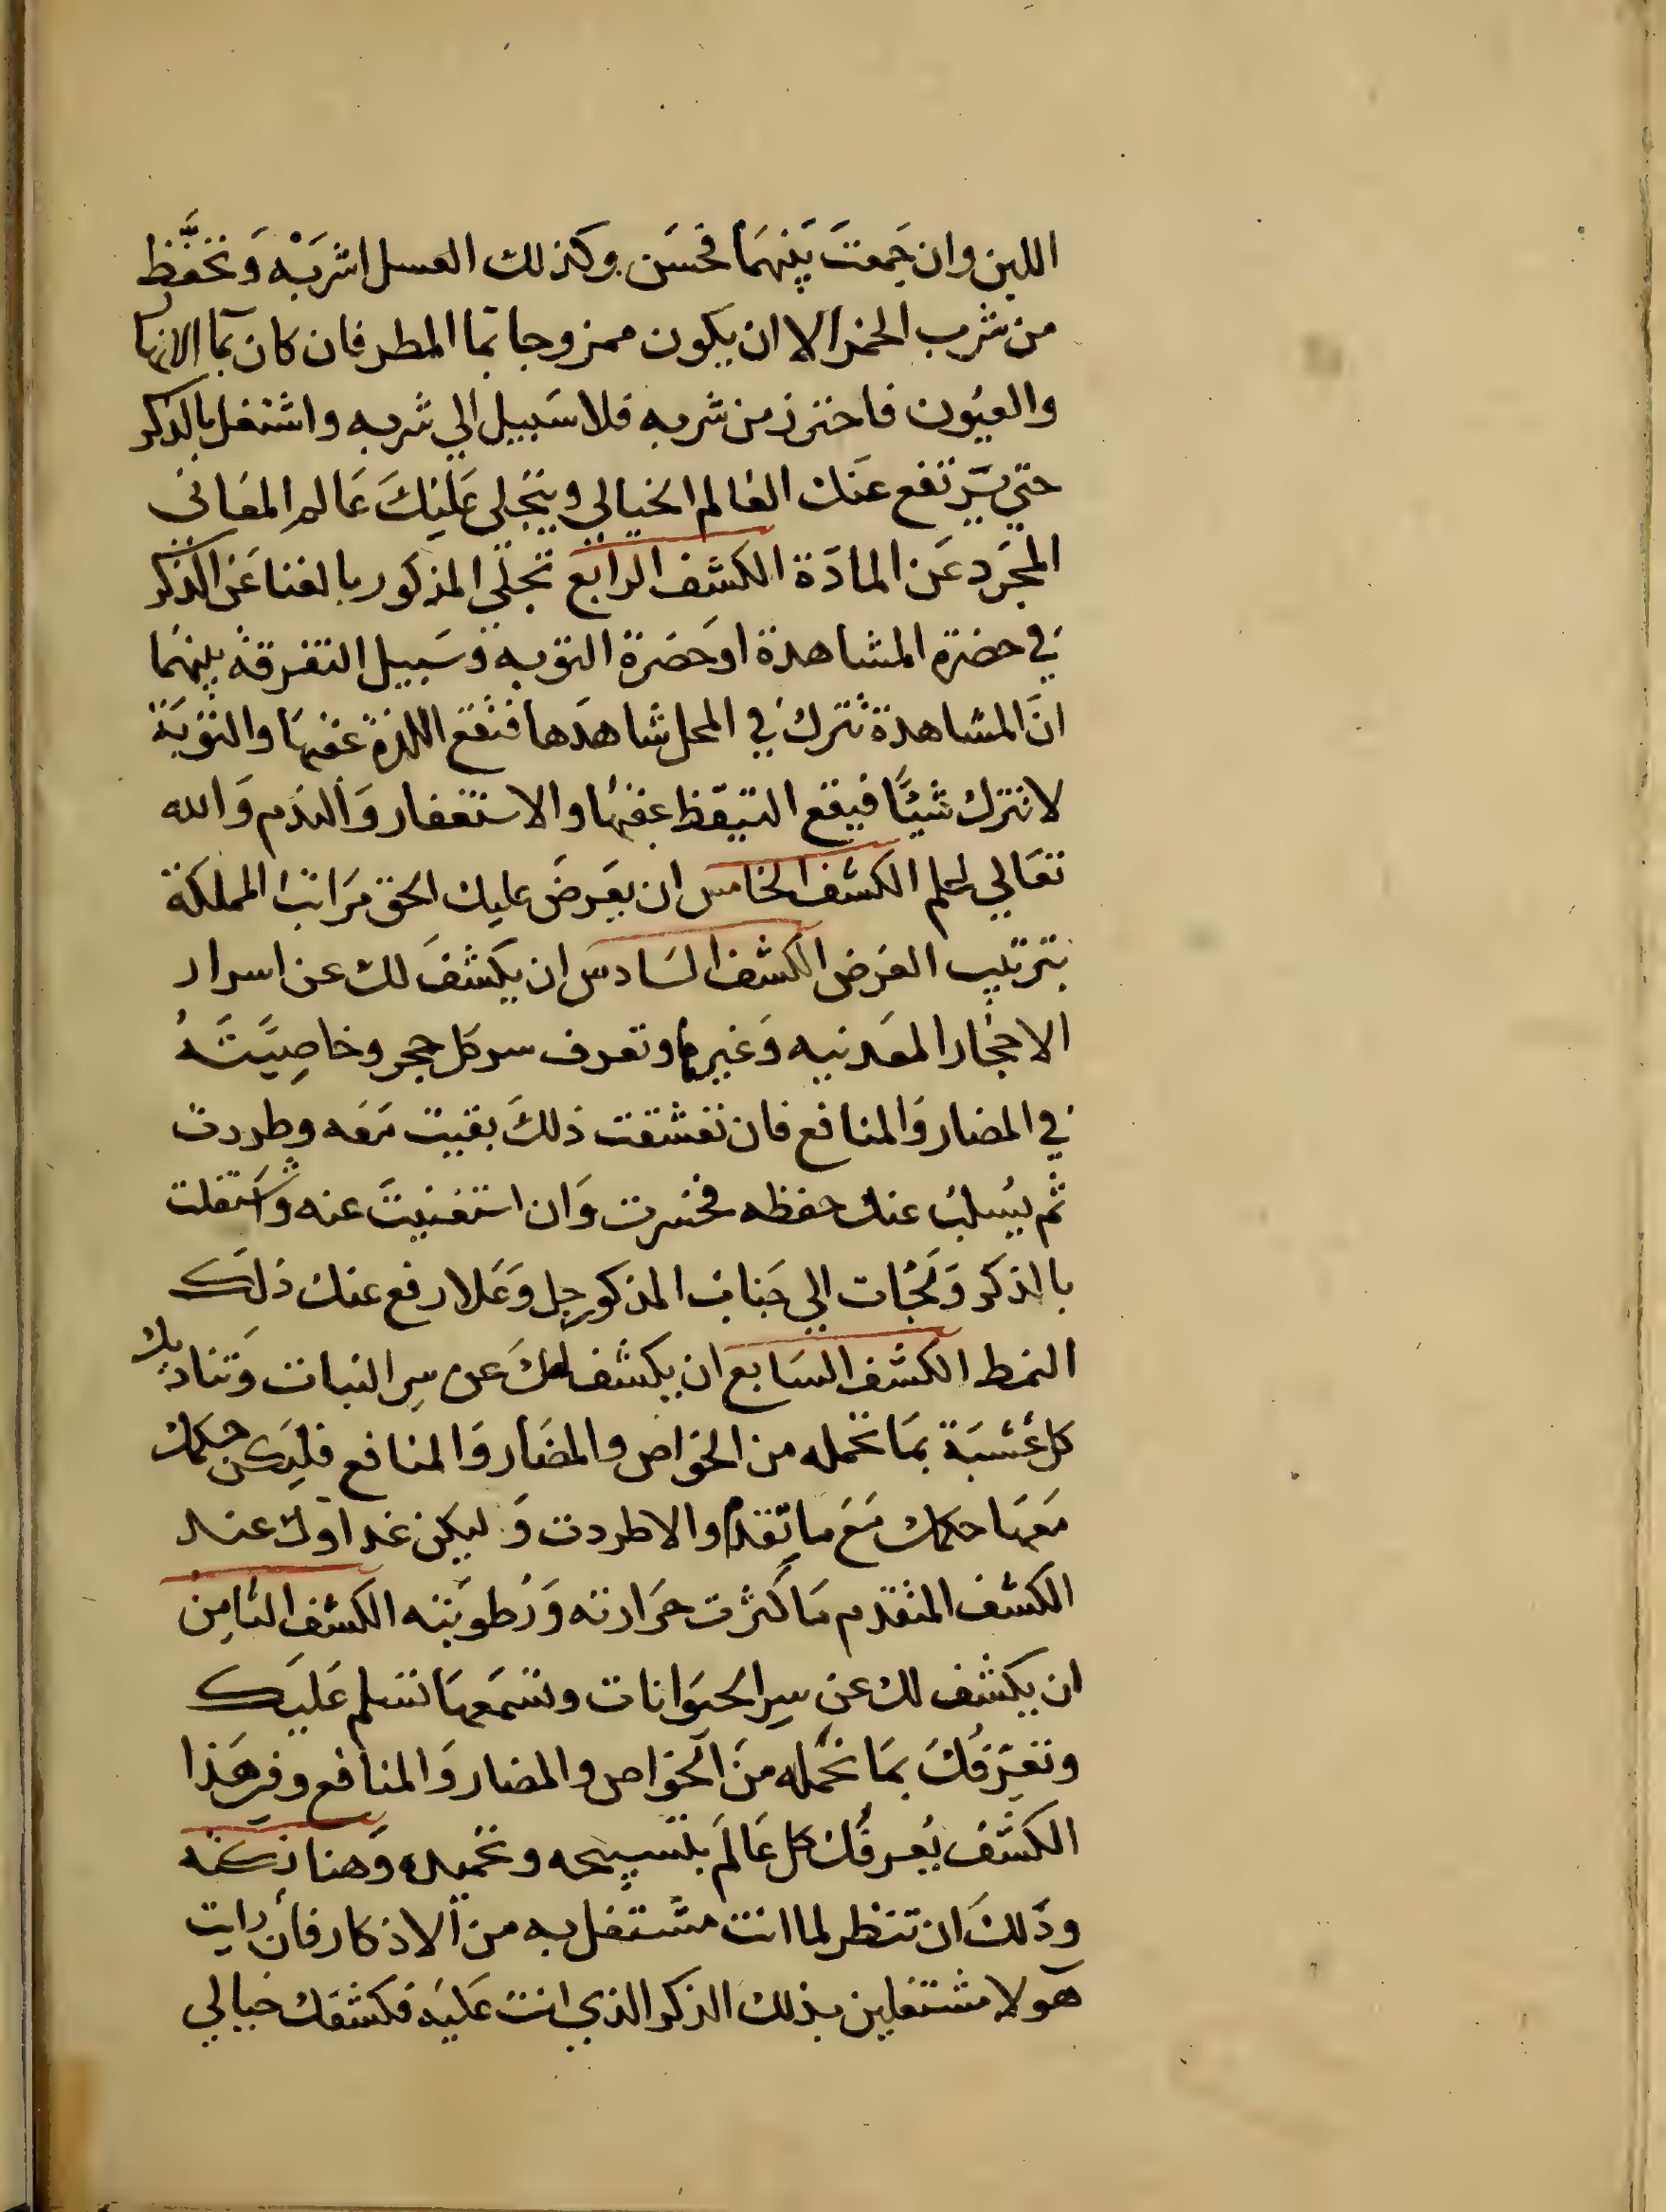 اللبن وان جَمعتَ بَينهمَا فحسَن وكذلك العسل اشرَبْه وَتحفَّظ
من شرب الخمر الا ان يكون ممزوجا بمآ المطر فان كان بمآ الانهار
والعيُون فاحترز من شربه فلا سَبيل الي شربه واشتغل بالذكر
حتي يَرتفع عَنك العَالم الخيالي ويتجَلى عَليْكَ عَالم المعَاني
المجَرد عَن المادّة الكشف الرابع تجلّي المذكور بالفنا عَن الذكر
في حضرة المشاهدة او حَضرة النومه وَسَبيل التفرقة بينهمَا
انَّ المشاهدة تترك في المحل شاهدَها فتقع اللذة عقبهَا والنومَة
لا تترك شيئًا فيقع التيقّظ عقبهَا والاستغفار وَالندَم وَالله
تعَالي اعلم الكشف الخامس ان يعَرضَ عليك الحق مَراتبَ المملكة
بترتيب العَرض الكشف السَادس ان يكشفَ لك عن اسرار
الاحجَار المعَدنيه وَغيرها وتعرف سر كل حجر وخاصِيَّتَهُ
في المضار وَالمنافع فان تعشقت ذلكَ بقيت مَعَه وطردت
ثم يُسلبُ عنك حفظه فخسرت وَان استغنيتَ عنه وَاشتغلت
بالذكر وَلجَات الي جَناب المذكور جل وَعَلا رفع عنك ذلَك
النمط الكشف السَابع ان يكشف لكَ عن سِر النبات وَتناديك
كل عُشبَة بمَا تحمله من الخوَاص والمضَار وَالمنافع فليَكن حكمك
مَعهَا حكمك مَعَ ما تقدم والا طردت وَليكن غداوك عند
الكشف المتقدم مَا كثرت حَرارته وَرُطوبَته الكشف الثامِن
ان يكشف لك عَن سِر الحيَوانات وتسمَعهَا تسلم عَليَك
وتعَرّفُكَ بمَا تحمله منَ الخوَاص والمضار وَالمنافع وفي هَذا
الكشف يُعرفُك كل عَالَم بتسبيحه وتحميده وَهنا نكته
وذلكَ ان تنظر لما انت مشتغل به من الاذكار فان رايت
هَولا مشتغلين بذلك الذكر الذي انت عَليَه فكشفك خيالي